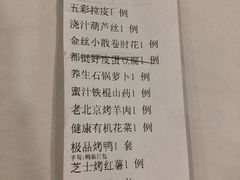 五彩拉皮1 例
浇汁葫芦丝1 例
金丝小散卷肘花1 例
都挺好皮蛋豆腐1 例
养生石锅萝卜1 例
蜜汁铁棍山药1 例
老北京烤羊肉1 例
健康有机花菜1 例
极品烤鸭1 套
手写: 鸭架打包
芝士烤红薯1 例